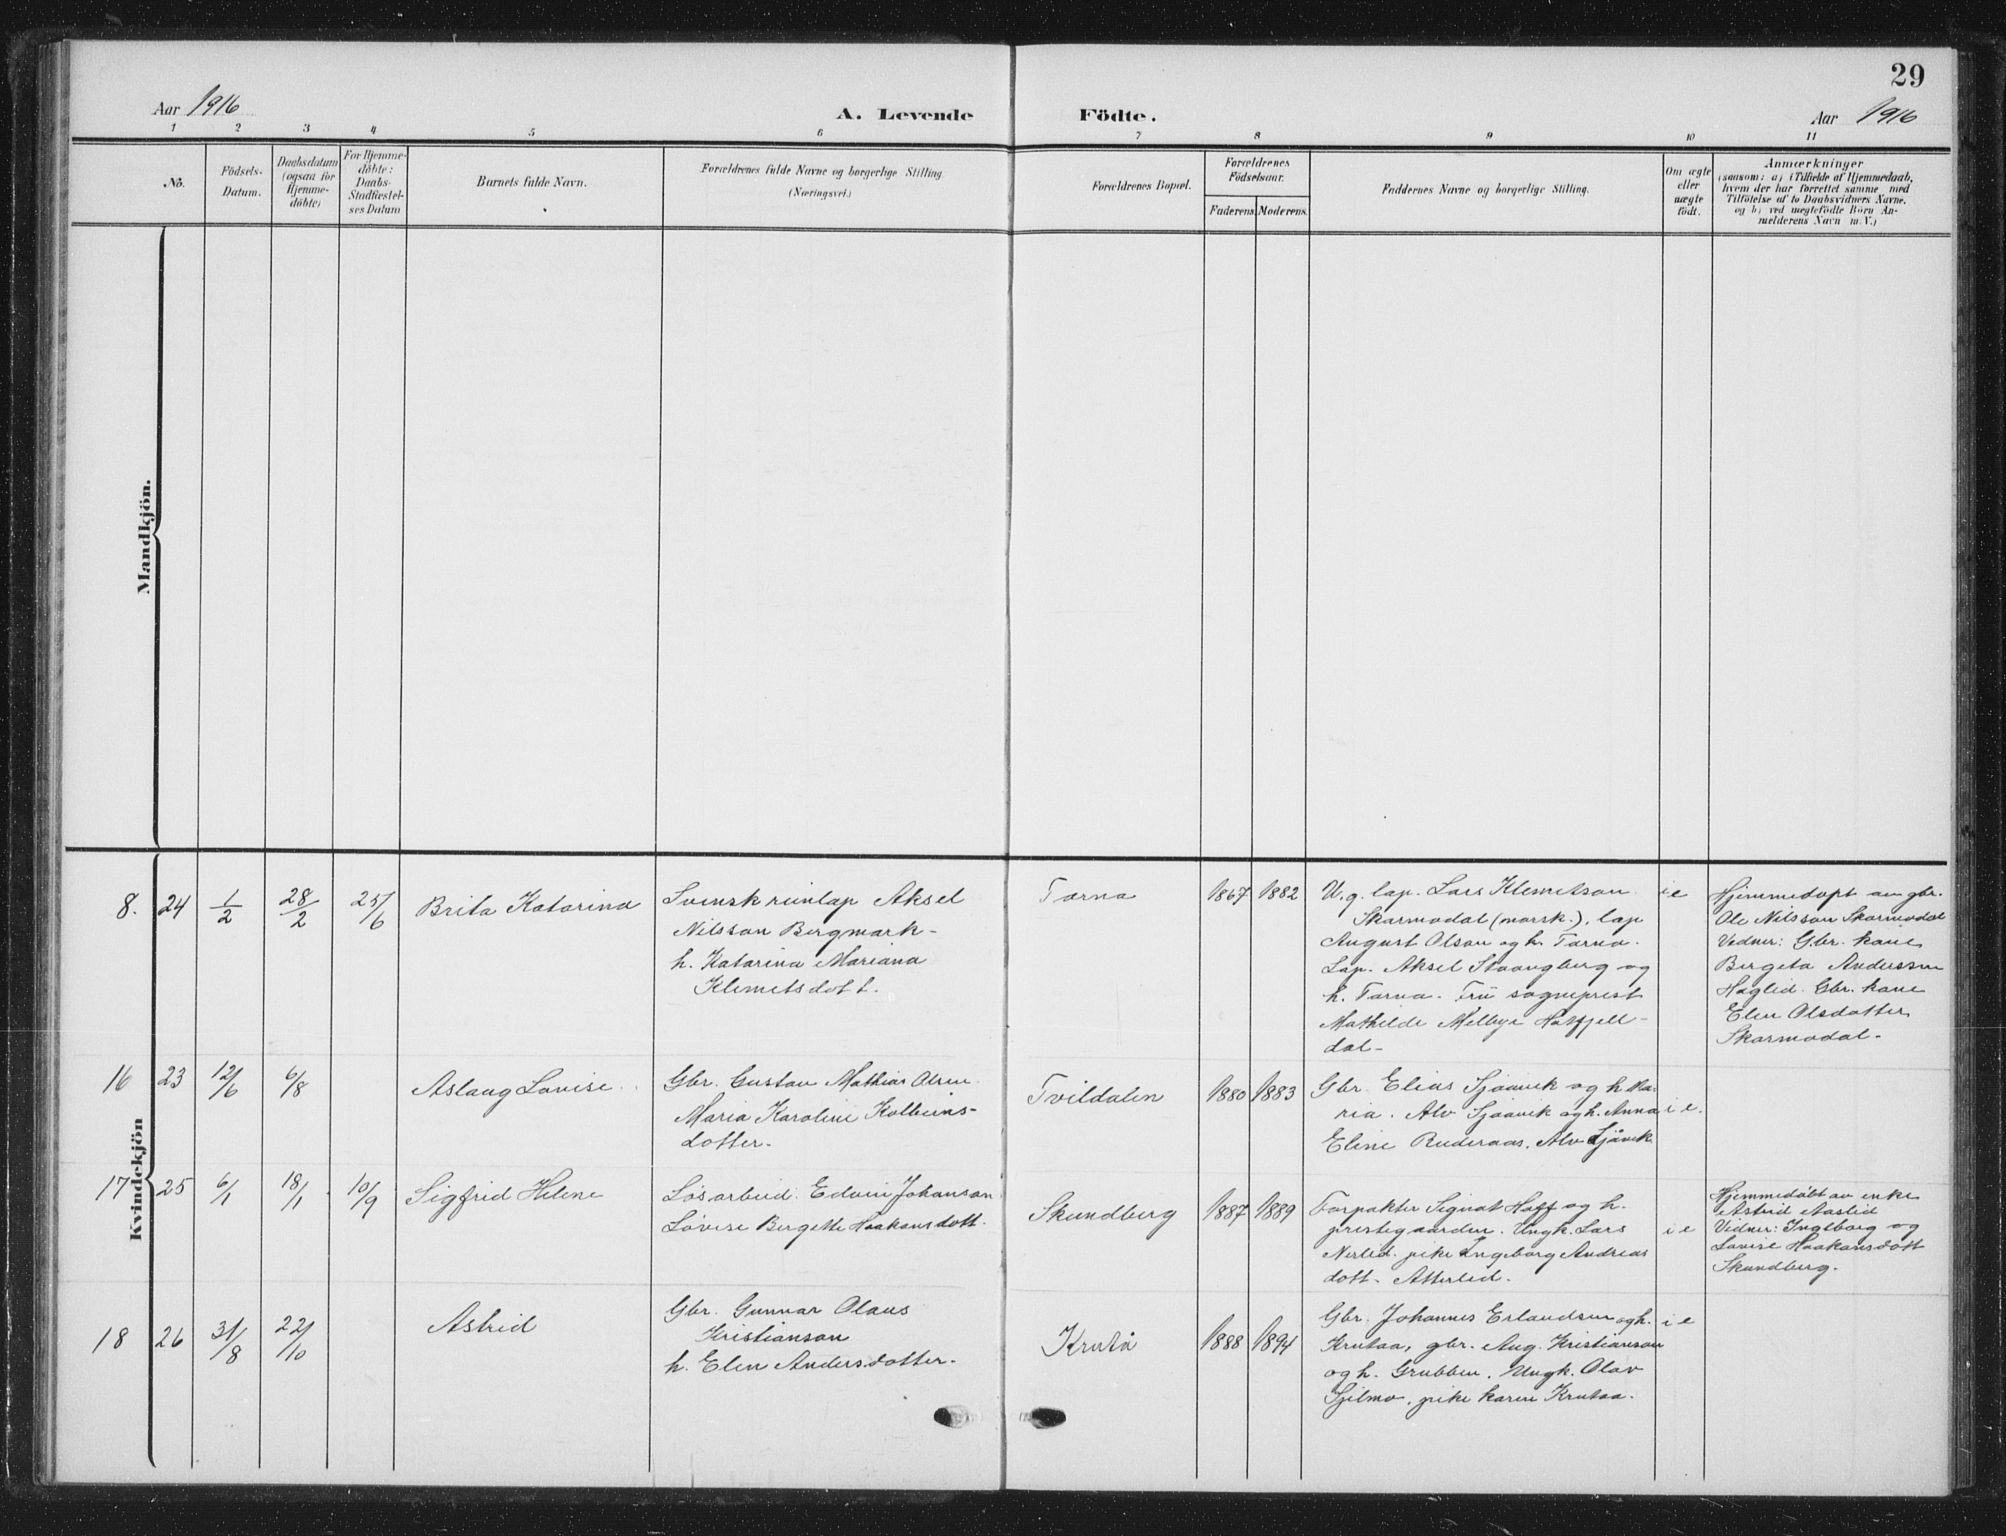 29
Aar 1916
A. Levende Födte.
Aar 1916
1 2 3 4 5 6 7 8 9 10 11
No.
Födsels-
Datum.
Daabsdatum
(ogsaa for
Hjemme-
döbte)
For Hjemme-
döbte:
Daabs-
Stadfestel-
ses Datum
Barnets fulde Navn.
Forældrenes fulde Navne og borgerlige Stilling
(Næringsvei.)
Forældrenes Bopæl.
Forældrenes
Födselsaar.
Faderens. Moderens.
Faddernes Navne og borgerlige Stilling.
Om ægte
eller
uægte
födt.
Anmærkninger
(saasom: a) i Tilfælde af Hjemmedaab,
hvem der har forrettet samme med
Tilföielse af to Daabsvidners Navne.
og b) ved uægtefödte Börn An-
melderens Navn m.V.)
Mandkjön.
Kvindekjön
8. 24 1/2 28/2 25/6
Brita Katarina
Svensk rünlap Aksel
Nilsson Bergmark-
h. Katarina Mariana
Klemetsdott.
Tärna
1867 1882
U.g. lap. Lars Klemetson
Skarmodal (norsk.), lap
August Olson og h. Tärna.
Lap. Aksel Staangberg og
h. Tärna. Frü sogneprest
Mathilde Melbye Hatfjell-
dal-
i e
Hjemmedöpt av gbr.
Ole Nilsson Skarmodal
Vidner: Gbr. kone
Bergeta Anderssen
Haglid. Gbr. kone
Elen Olsdotter
Skarmodal.
16 23 12/6 6/8
Aslaug Lovise.
Gbr. Gustav Mathias Olsen
Maria Karoline Kolbeins-
dotter.
Tvildalen
1880 1883
Gbr. Elias Sjaavik og h. Ma-
ria. Alv Sjaavik og h. Anna
Eline Ruderaas, Alv Sjåvik
i e.
17 25 6/1 18/1 10/9
Sigfrid Helene
Løsarbeid. Edvin Johanson
Lovise Bergette Haakonsdott.
Skundberg
1887 1889
Forpakter Signot Hoff og h.
prestegaarden. Ungk. Lars
Nerlid. pike Ingeborg Andreas
dott. Atterlid.
i e
Hjemmedöbt av enke
Astrid Aaslid
Vidner: Ingeborg og
Lovise Haakonsdott
Skundberg.
18 26 31/8 22/10
Astrid
Gbr. Gunnar Olaus
Kristianson
h. Elen Andersdotter.
Krutå
1888 1894
Gbr. Johannes Erlandsen og h.
Krutaa, gbr. Aug. Kristianson
og h. Grubben. Ungk. Olav
Sjilmo, pike Karen Krutaa.
i e